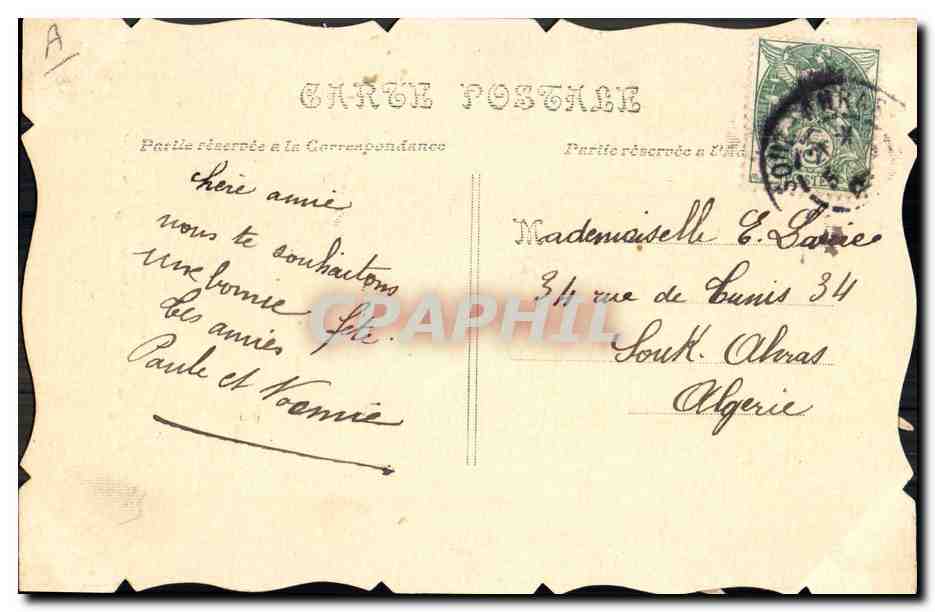 A
CARTE POSTALE
Partie réservée a la Correspondance
Partie réservée a l'Ad
chère amie
nous te souhaitons
une bonne fête.
Tes amies
Paule et Noémie
Mademoiselle E.
34 rue de Tunis 34
Souk-Ahras
Algerie
SOUK AHRAS
CPAPHIL